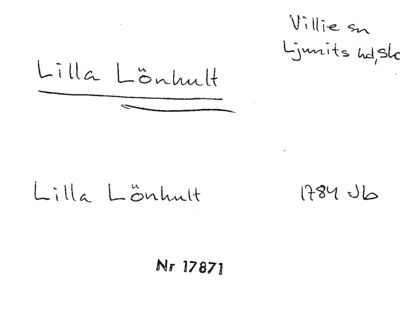 Villie sn
Ljunits hd, Sk
Lilla Lönhult
Lilla Lönhult 1784 Jb
Nr 17871